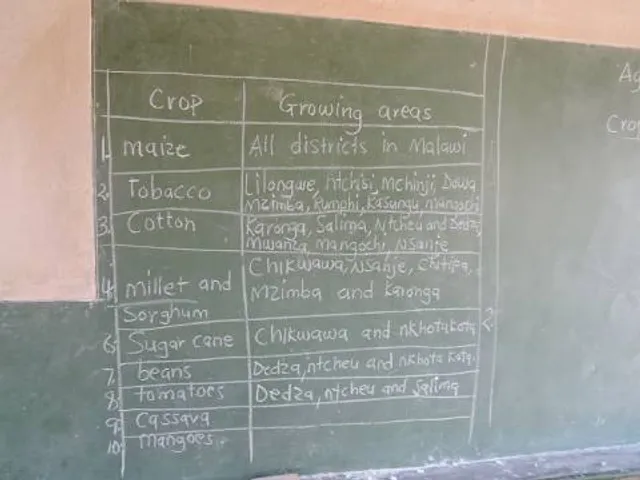 Crop Growing areas
1. maize All districts in Malawi
2. Tobacco Lilongwe, ntchisi, mchinji, Dowa,
mzimba, rumphi, Kasungu, mangochi
3. Cotton Karonga, Salima, Ntcheu and Dedza,
Mwanza, mangochi, Nsanje
Chikwawa, Nsanje, Chitipa,
4. millet and Mzimba and Karonga
Sorghum
6. Sugar cane Chikwawa and nkhotakota
7. beans Dedza, ntcheu and nkhota kota.
8. tomatoes Dedza, ntcheu and Salima
9. Cassava
10. mangoes.
Ag
Crop
2.